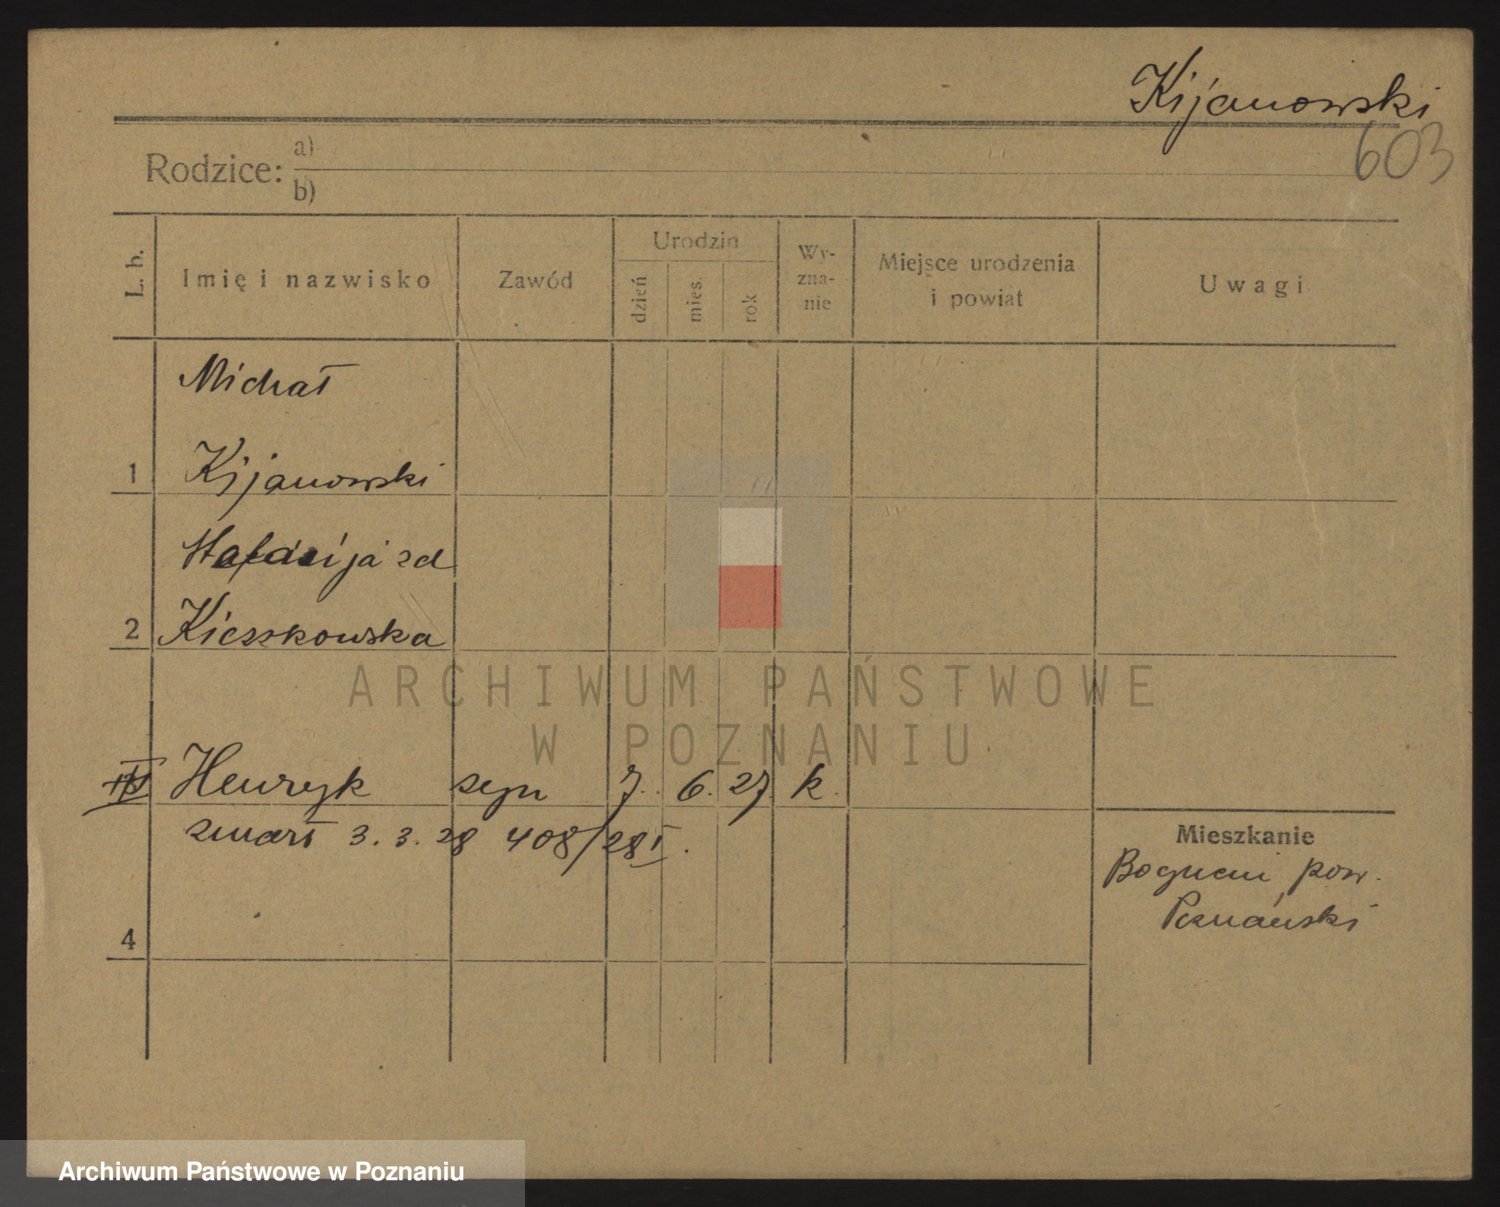 Kijanowski
603
Rodzice: a)
b)
L. b.
Imię i nazwisko
Zawód
Urodzin
dzień
mies.
rok
Wy-
zna-
nie
Miejsce urodzenia
i powiat
Uwagi
Michał
1 Kijanowski
zd
2 Kieszkowska
ARCHIWUM PAŃSTWOWE
W POZNANIU
Henryk syn 7. 6. 27 k.
zmarł 3. 3. 28 408/28 I.
Mieszkanie
pow.
Poznański
4
Archiwum Państwowe w Poznaniu